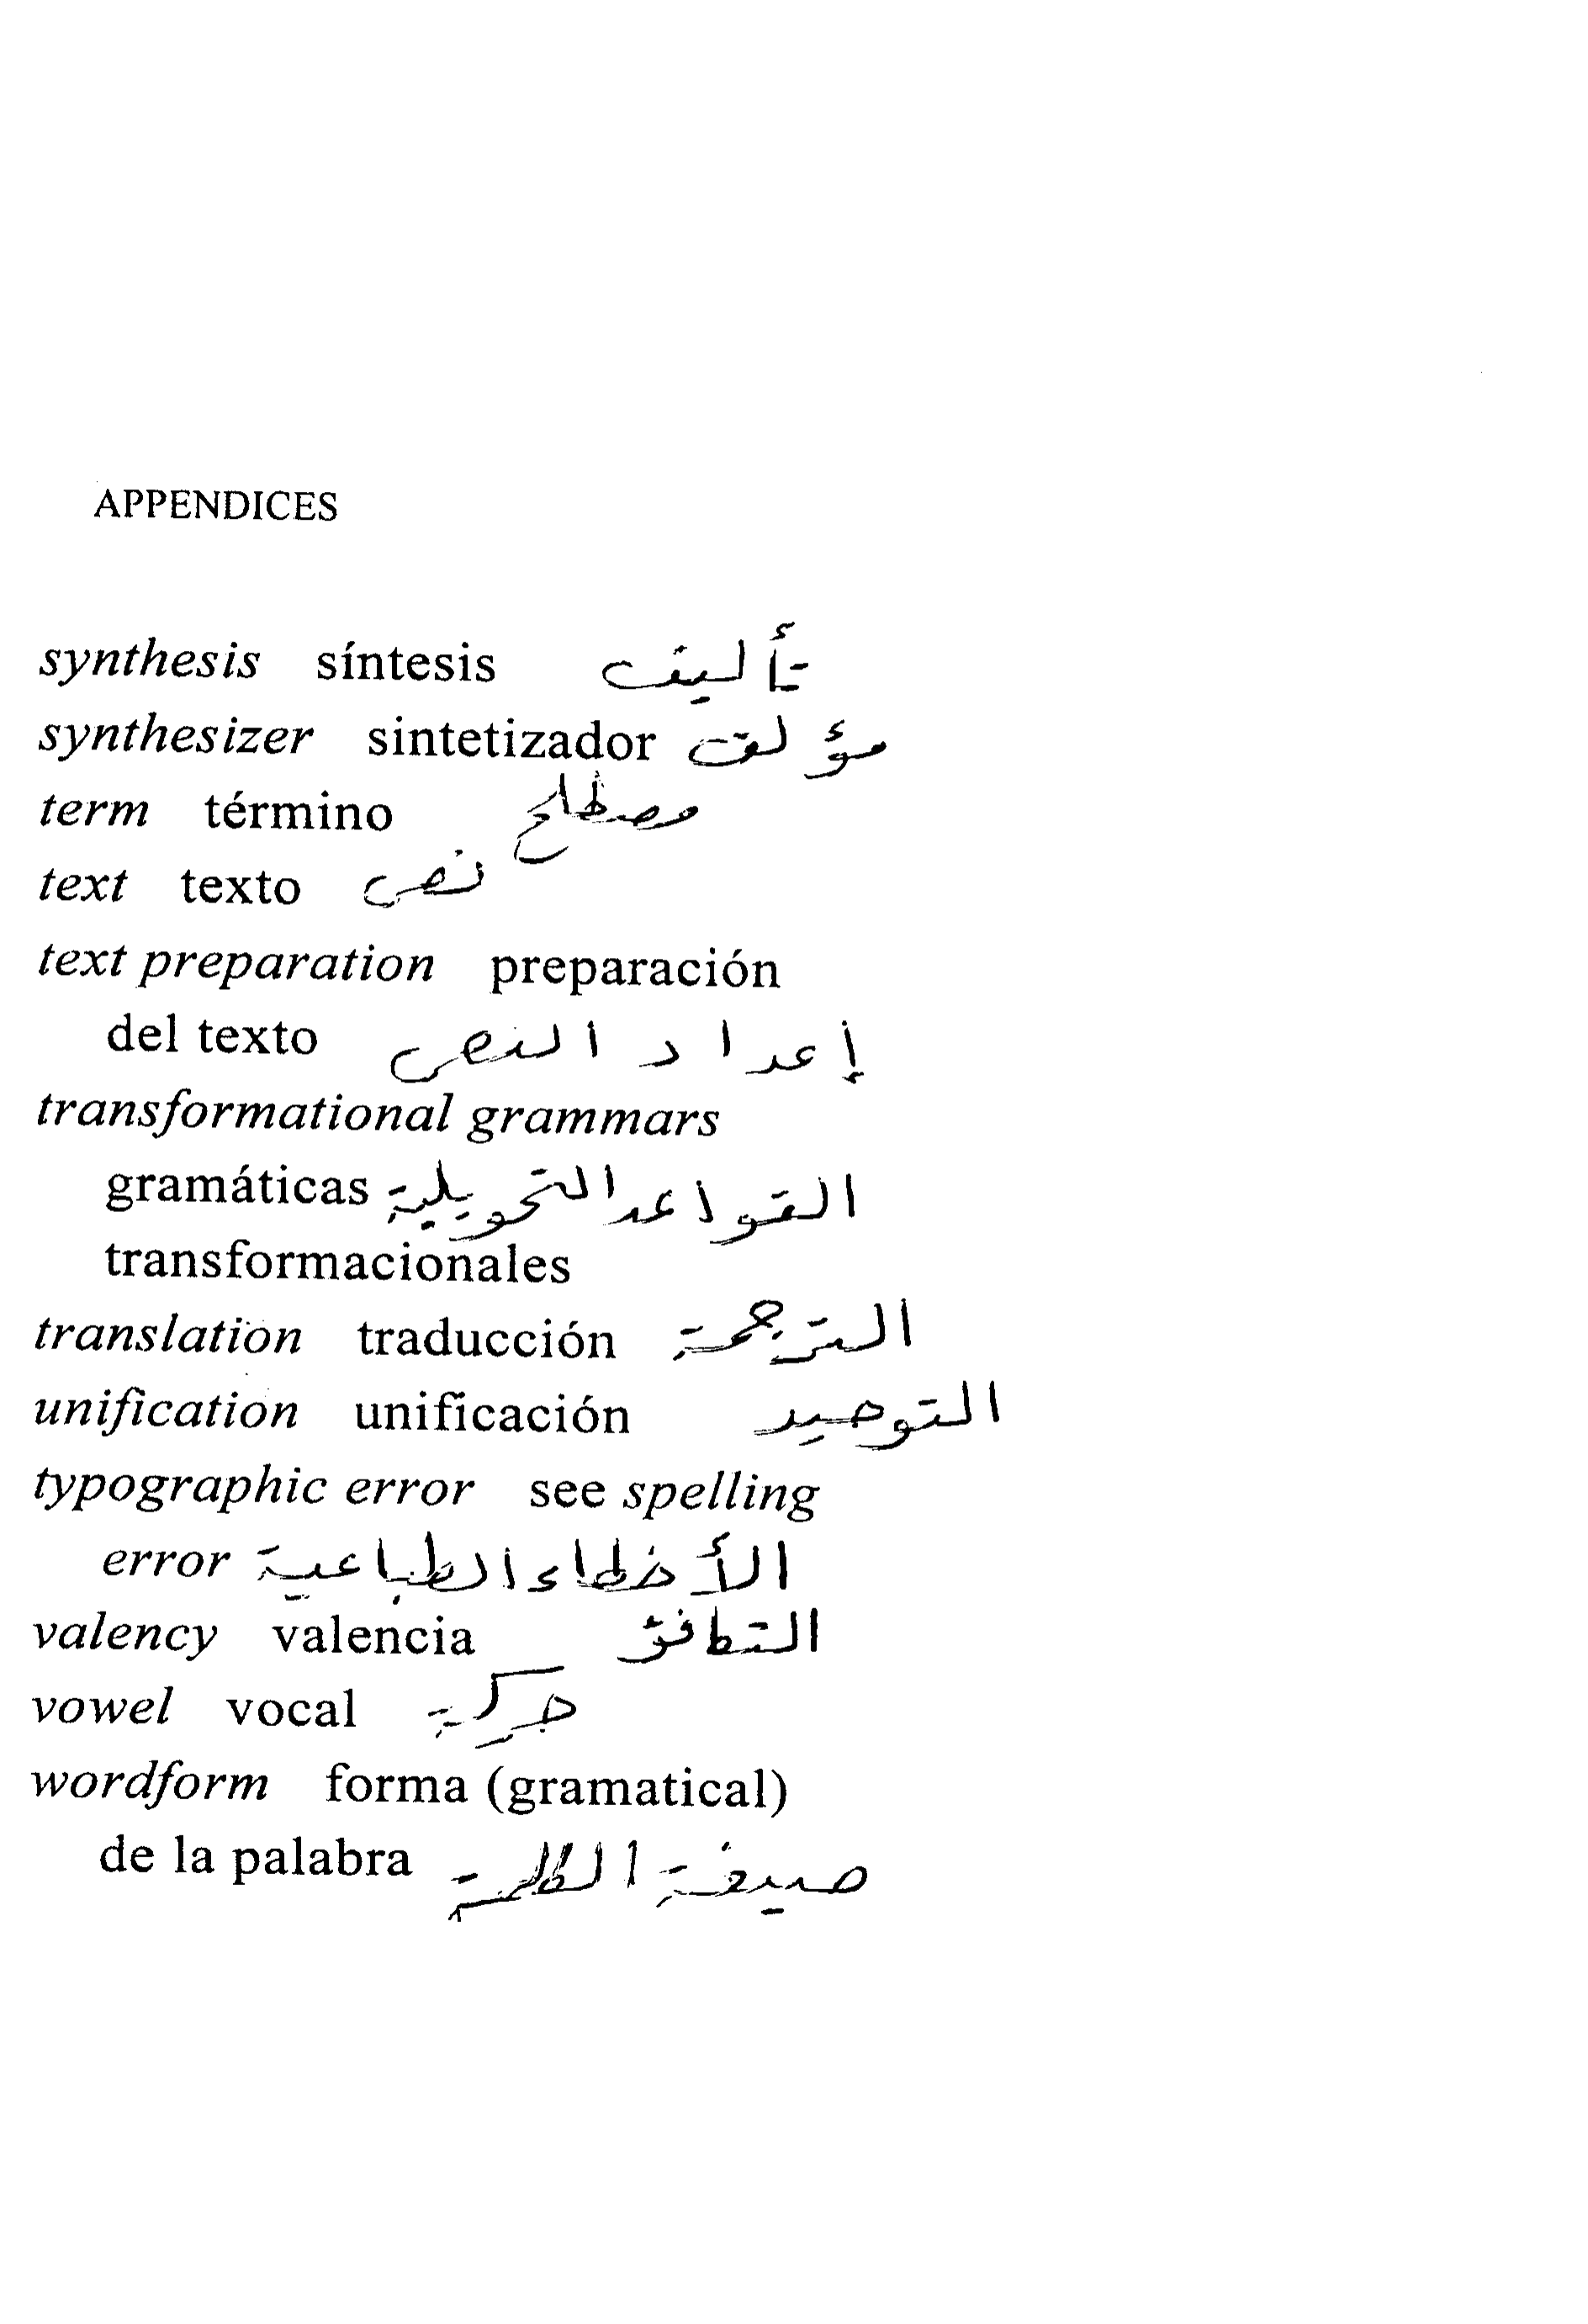 APPENDICES
synthesis síntesis تأليف
synthesizer sintetizador مؤلف
term término مصطلح
text texto نص
text preparation preparación
del texto إعداد النص
transformational grammars
gramáticas القواعد التحويلية
transformacionales
translation traducción الترجمة
unification unificación التوحيد
typographic error see spelling
error الأخطاء الطباعية
valency valencia
vowel vocal حركة
wordform forma (gramatical)
de la palabra صيغة الكلمة